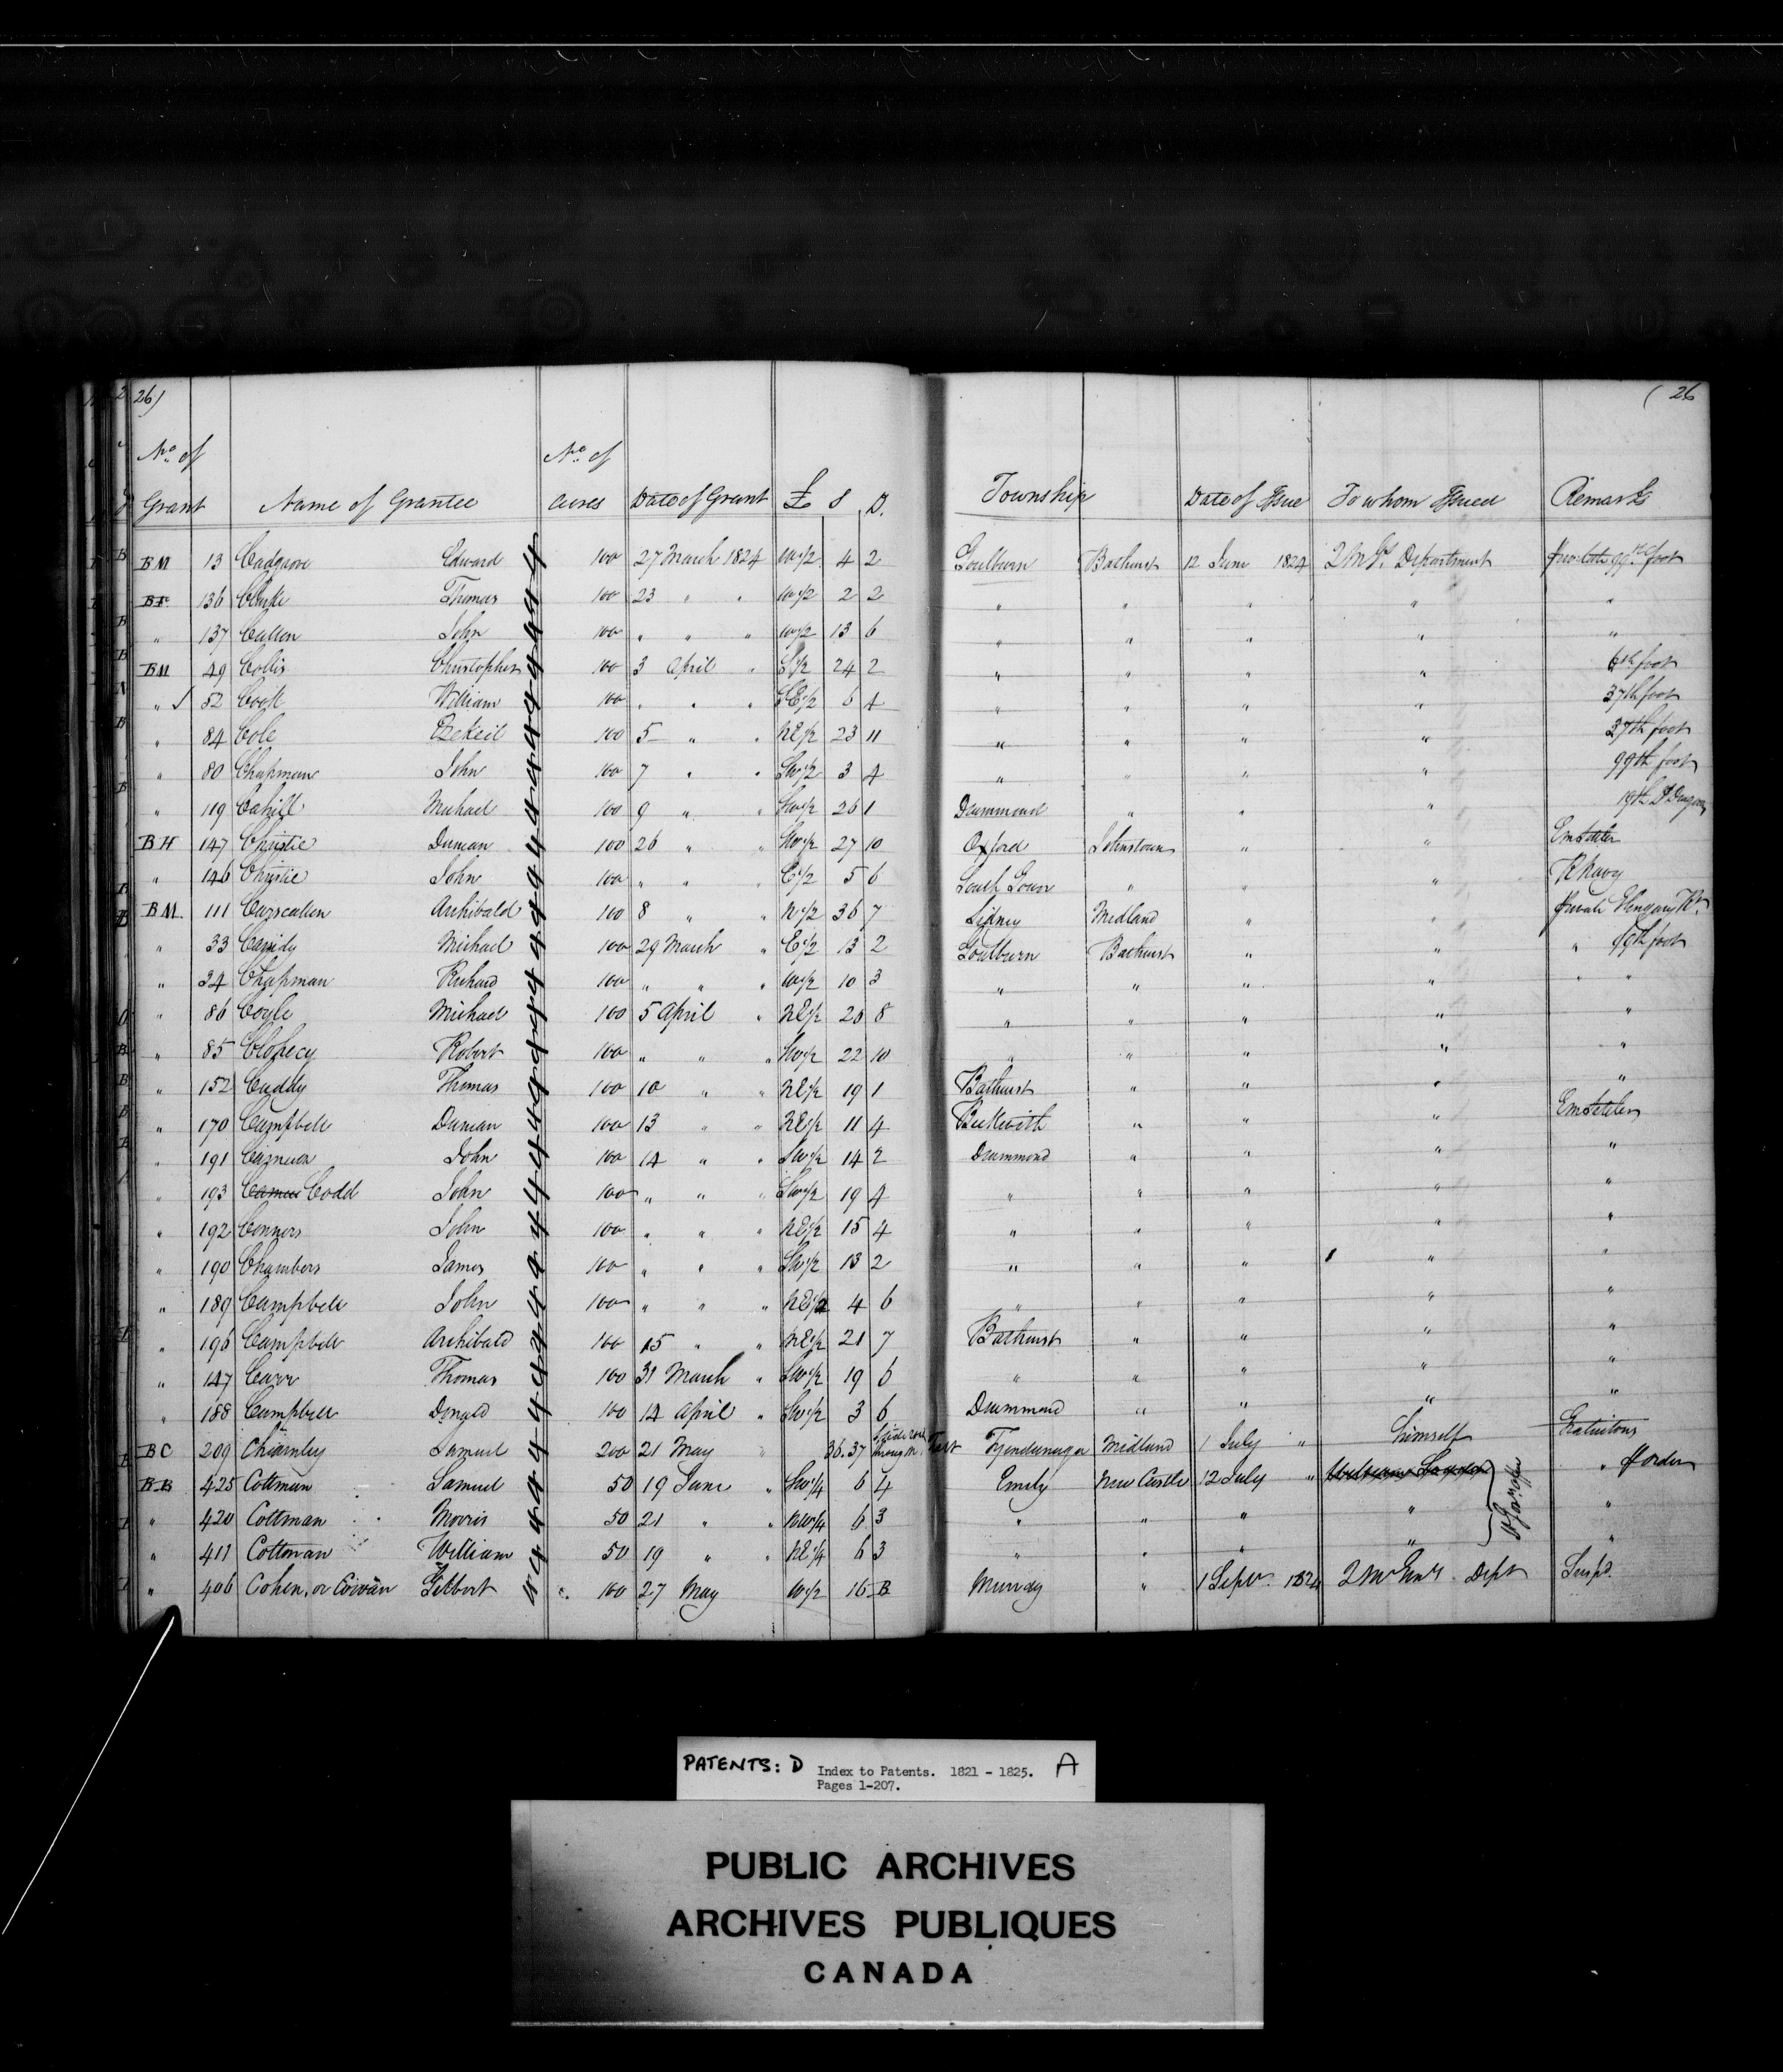 26) ( 26
No. of No. of
Grant Name of Grantee acres Date of Grant £ S D. Township Date of Issue To whom Issued Remarks
BM 13 Edward 100 27 March 1824 W½ 4 2 Goulburn Bathurst 12 June 1824 2 M Gs. Department Private 99th foot
136 Clarke Thomas 100 23 " " W½ 2 2 " " " " "
" 137 Cullen John 100 " " " W½ 13 6 " " " " "
BM 49 Collis Christopher 100 3 April " 24 2 " " " " foot
" 52 Cook William 100 " " " SE½ 6 4 " " " " 37th foot
" 84 Cole Ezekeil 100 5 " " NE½ 23 11 " " " " 37th foot
" 80 Chapman John 100 7 " " SW½ 3 4 " " " " 99th foot
" 119 Cahill Michael 100 9 " " SW½ 26 1 Drummond " " " 19th Lt Dragoons
BH 147 Christie Duncan 100 26 " " SW½ 27 10 Oxford Johnstown " " Em Settler
" 146 Christie John 100 " " " E½ 5 6 South Gower " " " R Navy
BM 111 Carscallen Archibald 100 8 " " N½ 36 7 Sidney Midland " " Private
" 33 Cassidy Michael 100 29 March " E½ 13 2 Goulburn Bathurst " " " 99th foot
" 34 Chapman Richard 100 " " " W½ 10 3 " " " " " "
" 86 Coyle Michael 100 5 April " NE½ 20 8 " " " " "
" 85 Clohecy Robert 100 " " " SW½ 22 10 " " " " "
" 152 Cuddy Thomas 100 10 " " NE½ 19 1 Bathurst " " " "
" 170 Campbell Duncan 100 13 " " NE½ 11 4 Beckwith " " " Em Settler
" 191 John 100 14 " " SW½ 14 2 Drummond " " " "
" 193 Codd John 100 " " " SW½ 19 4 " " " " "
" 192 Connors John 100 " " " NE½ 15 4 " " " " "
" 190 Chambers James 100 " " " SW½ 13 2 " " " " "
" 189 Campbell John 100 " " " NE½ 4 6 " " " " "
" 196 Campbell Archibald 100 15 " " NE½ 21 7 Bathurst " " " "
" 147 Carr Thomas 100 31 March " SW½ 19 6 " " " " "
" 188 Campbell Donald 100 14 April " SW½ 3 6 Drummond " " " "
BC 209 Chiamley Samuel 200 21 May " 36.37 Tyendenaga Midland 1 July " himself Gratuitous
BB 425 Cottman Samuel 50 19 June " SW¼ 6 4 Emily New Castle 12 July " William " order
" 420 Cottman Morris 50 21 " " NW¼ 6 3 " " " " "
" 411 Cottman William 50 19 " " NE¼ 6 3 " " " " "
" 406 Cohen, or Cowan Gilbert 100 27 May W½ 16 B Murray " 1 Sepr. 1824 Dept Suspd.
PATENTS: D Index to Patents. 1821 - 1825. A
Pages 1-207.
PUBLIC ARCHIVES
ARCHIVES PUBLIQUES
CANADA